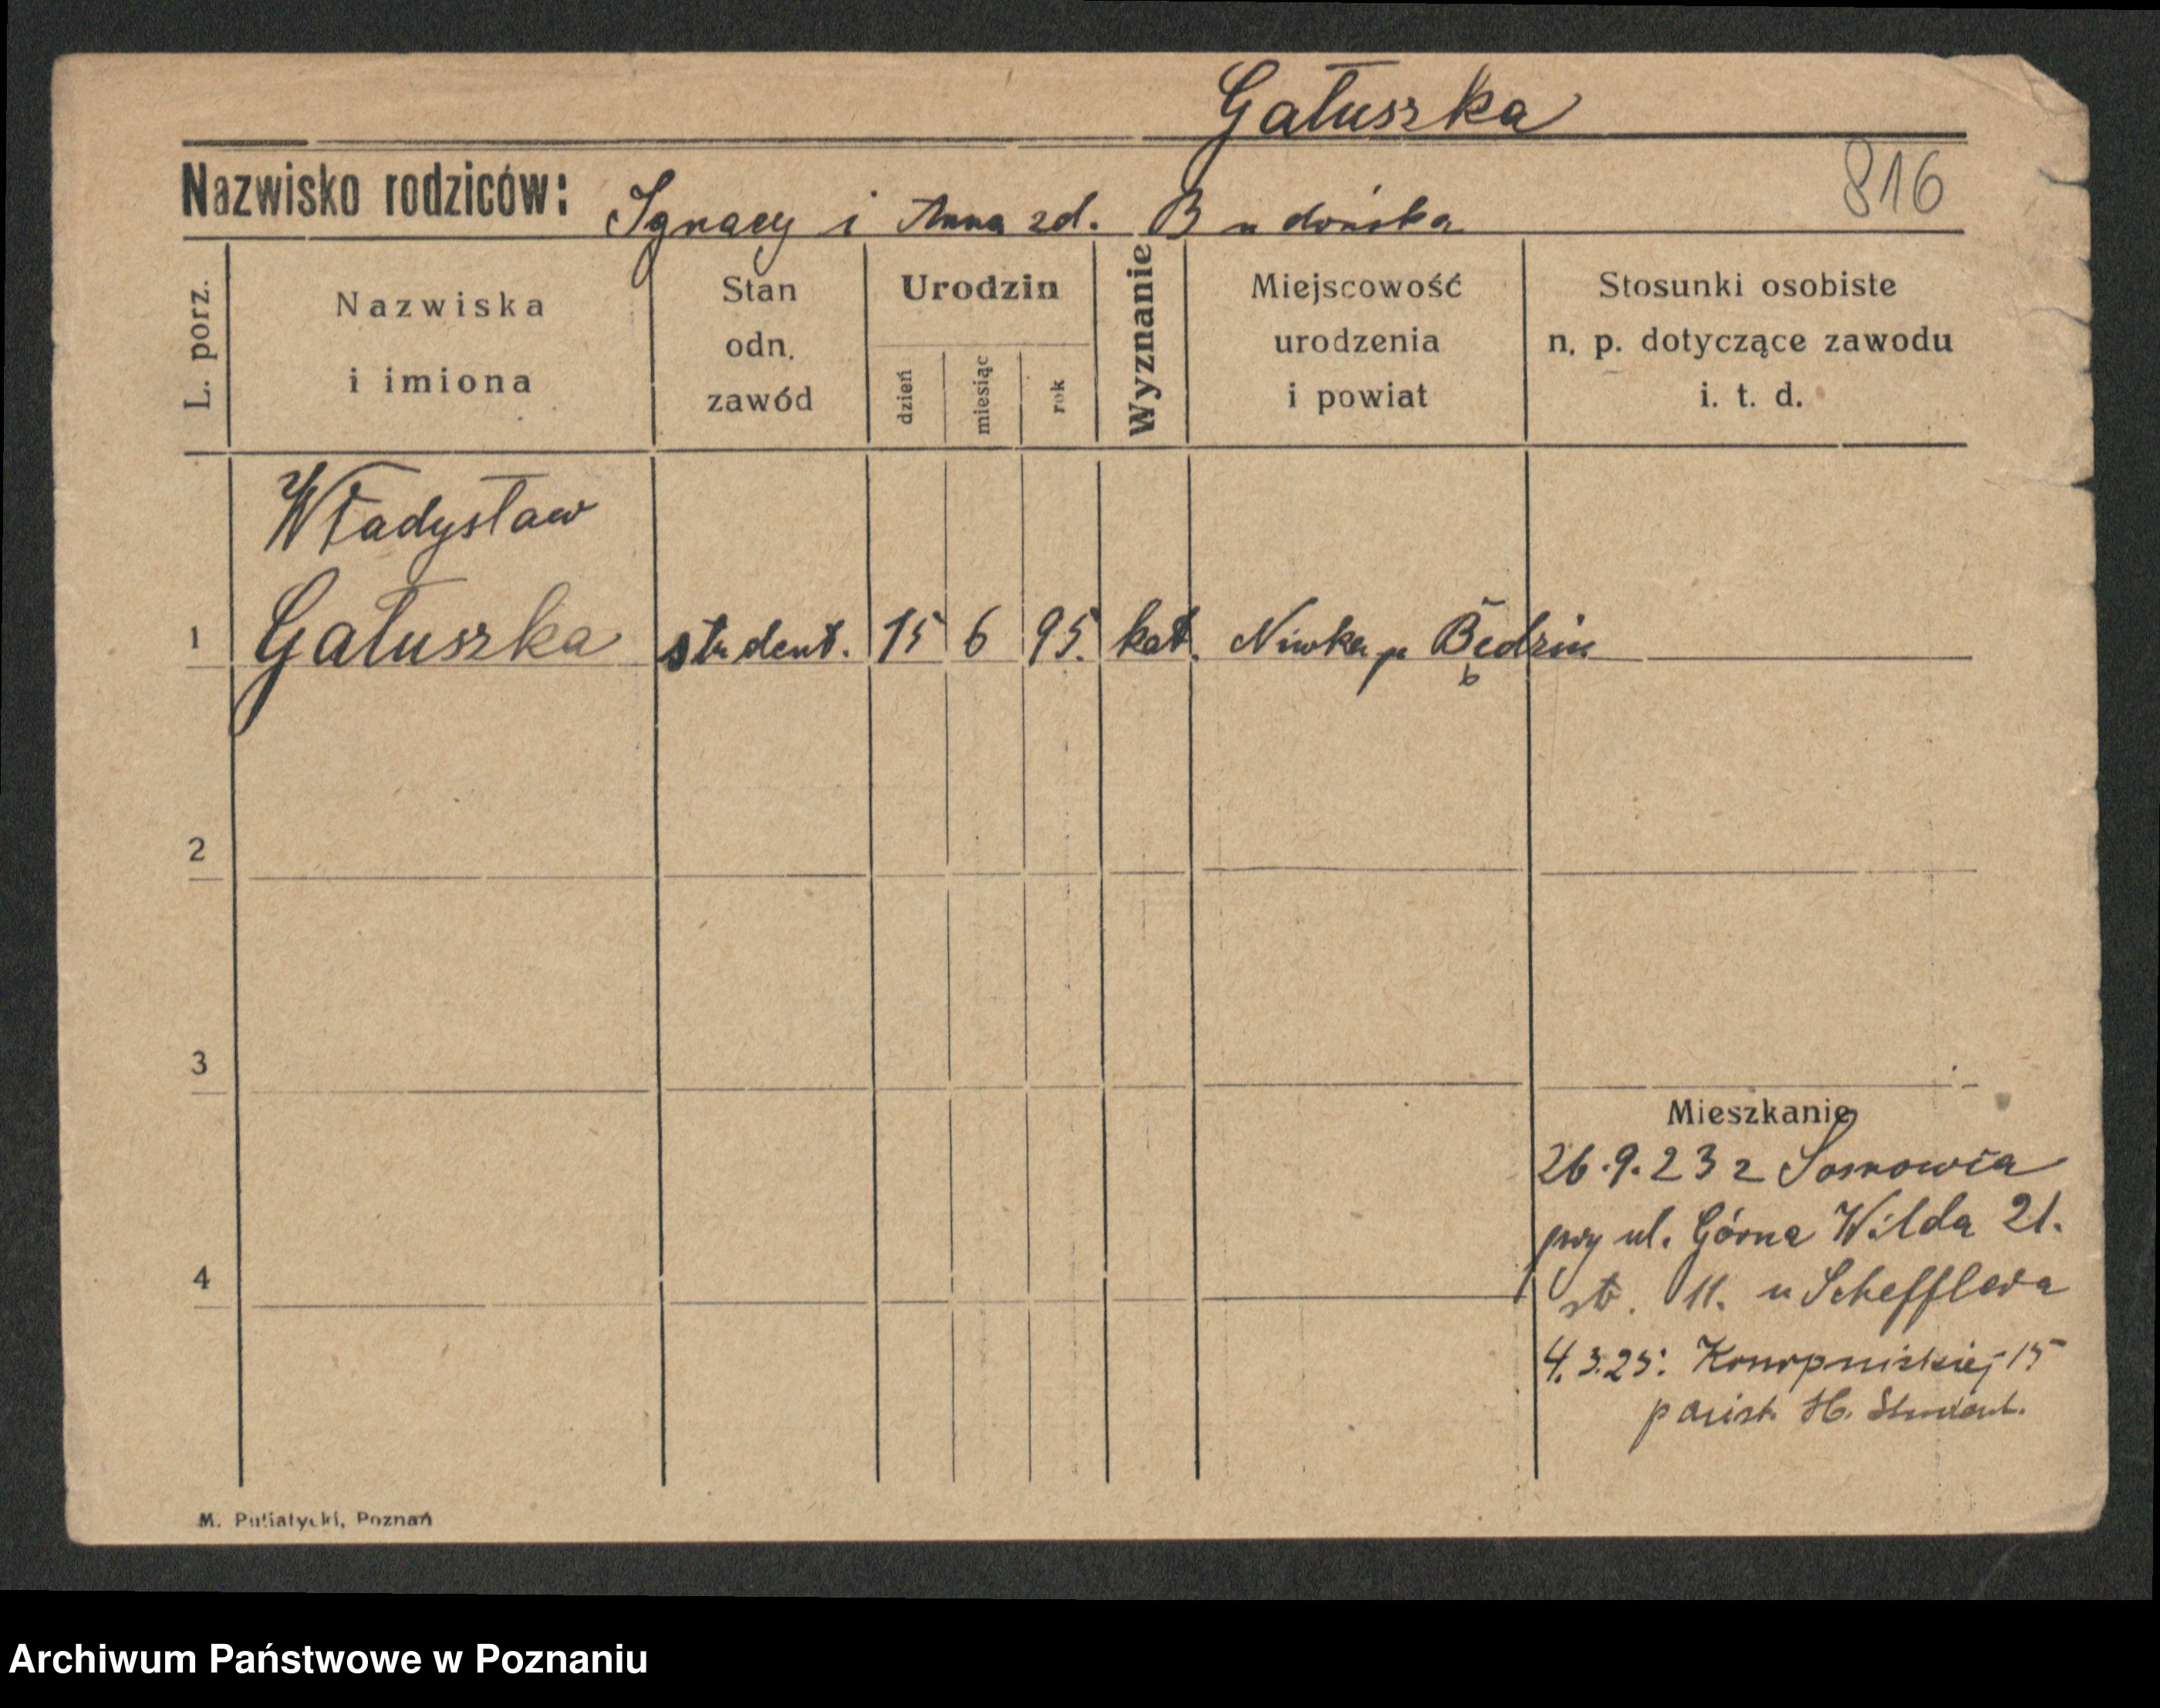 Gałuszka
816
Nazwisko rodziców: Ignacy i Anna zd.
L. porz.
Nazwiska
i imiona
Stan
odn.
zawód
Urodzin
dzień
miesiąc
rok
Wyznanie
Miejscowość
urodzenia
i powiat
Stosunki osobiste
n. p. dotyczące zawodu
i. t. d.
Władysław
1 Gałuszka student. 15 6 95. kat. Niwka p Będzin
2
3
4
Mieszkanie
26.9.23 z Sosnowca
przy ul. Górna Wilda 21.
11. u Schefflera
4.3.25: Konopnickiej 15
H. Student.
M. Putiatycki, Poznań
Archiwum Państwowe w Poznaniu